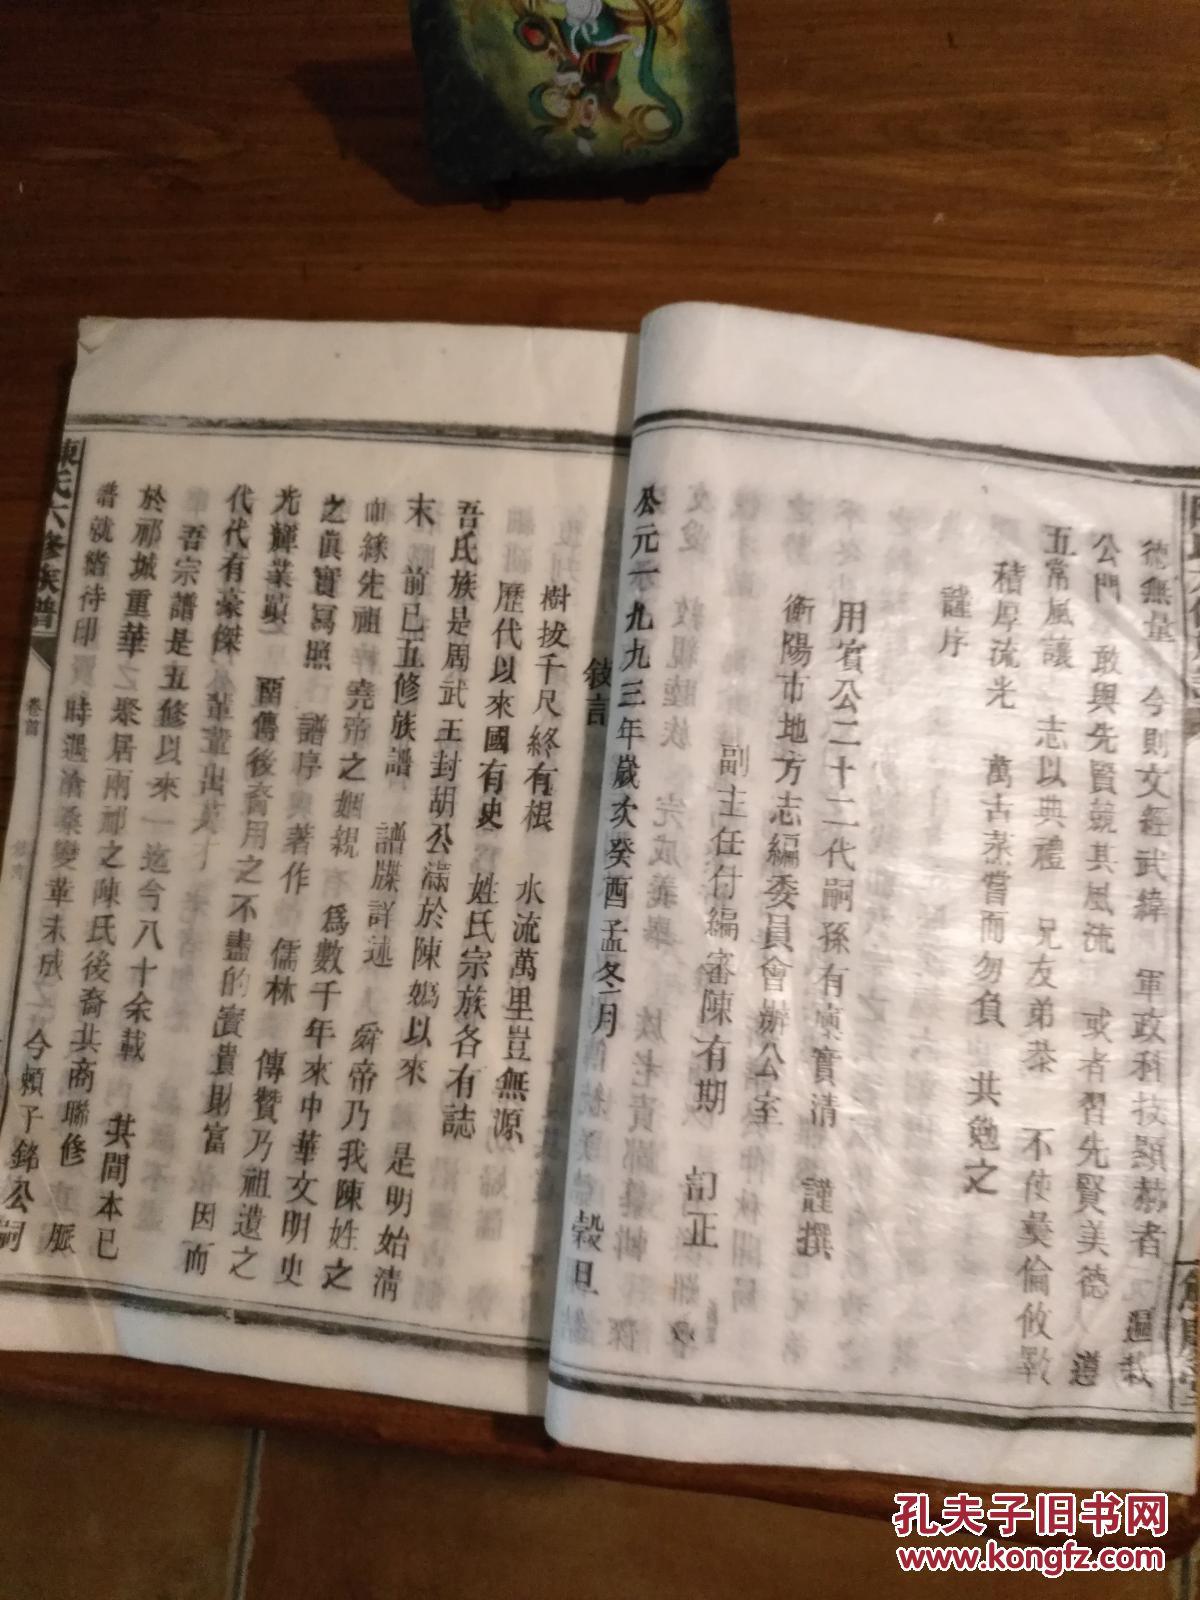 德無量 今則文經武緯 軍政科技顯赫者 遍栽
公門 敢與先賢競其風流 或者習先賢美德 遵
五常風讓 志以典禮 兄友弟恭 不使彝倫攸斁
積厚流光 萬古蒸嘗而勿負 共勉之
謹序
用賓公二十二代嗣孫有 實清 謹撰
衡陽市地方志編委員會辦公室
副主任付編審陳有期 訂正
公元一九九三年歲次癸酉孟冬月 穀旦
敍言
樹拔千尺終有根 水流萬里豈無源
歷代以來國有史 姓氏宗族各有誌
吾氏族是周武王封胡公滿於陳媯以來 是明始清
末 前已五修族譜 譜牒詳述 舜帝乃我陳姓之
血緣先祖 堯帝之姻親 爲數千年來中華文明史
之真實寫照 譜序 著作 儒林 傳贊乃祖遺之
光輝業蹟 留傳後裔用之不盡的寶貴財富 因而
代代有豪傑 輩輩出英才
吾宗譜是五修以來一迄今八十余載 其間本已
於祁城重華 聚居兩祁之陳氏後裔共商聯修 脈
譜就緒待印 時遇滄桑變革未成 今賴子銘公嗣
陳氏六修族譜
卷首
孔夫子旧书网
www.kongfz.com